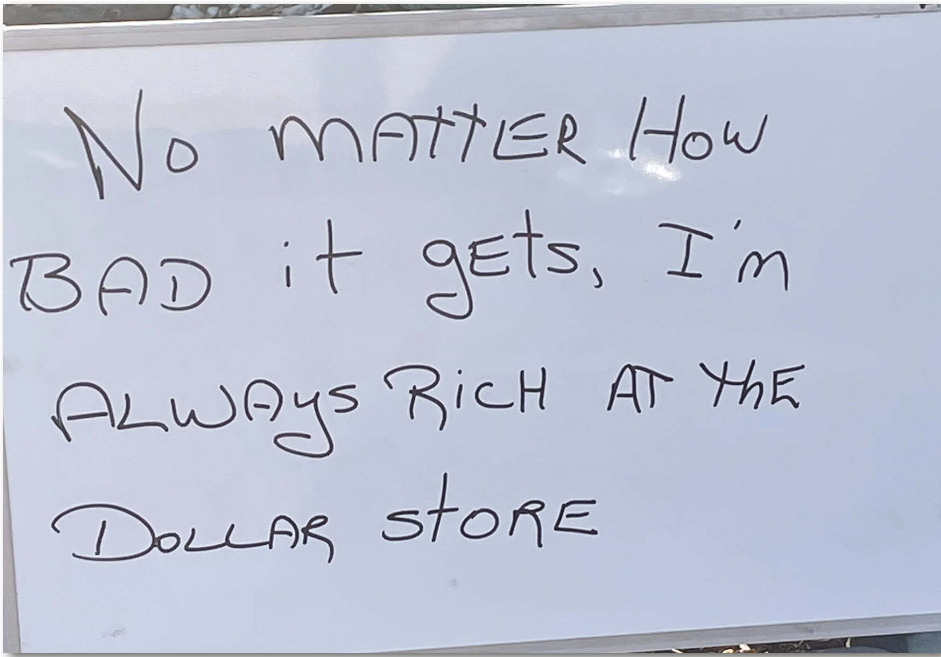 No MATTER How
BAD it gEts, I'm
ALWAys RiCH AT thE
DOLLAR stORE